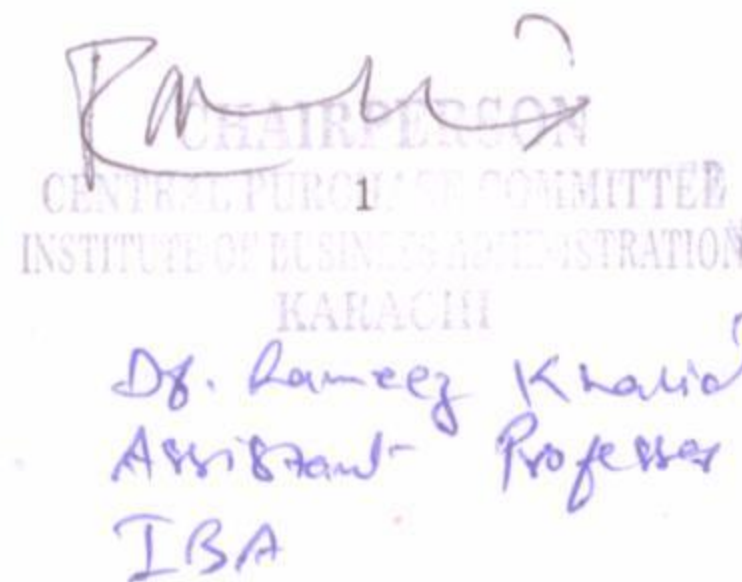 CHAIRPERSON
CENTRAL PURCHASE COMMITTEE
1
INSTITUTE OF BUSINESS ADMINISTRATION
KARACHI
Dr. Rameez Khalid
Assistant Professor
IBA